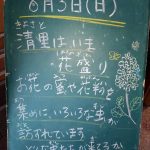 6月3日(日)
きよさと
清里はいま
花盛り
お花の蜜や花粉を
集めに、いろいろな虫が
訪ずれています